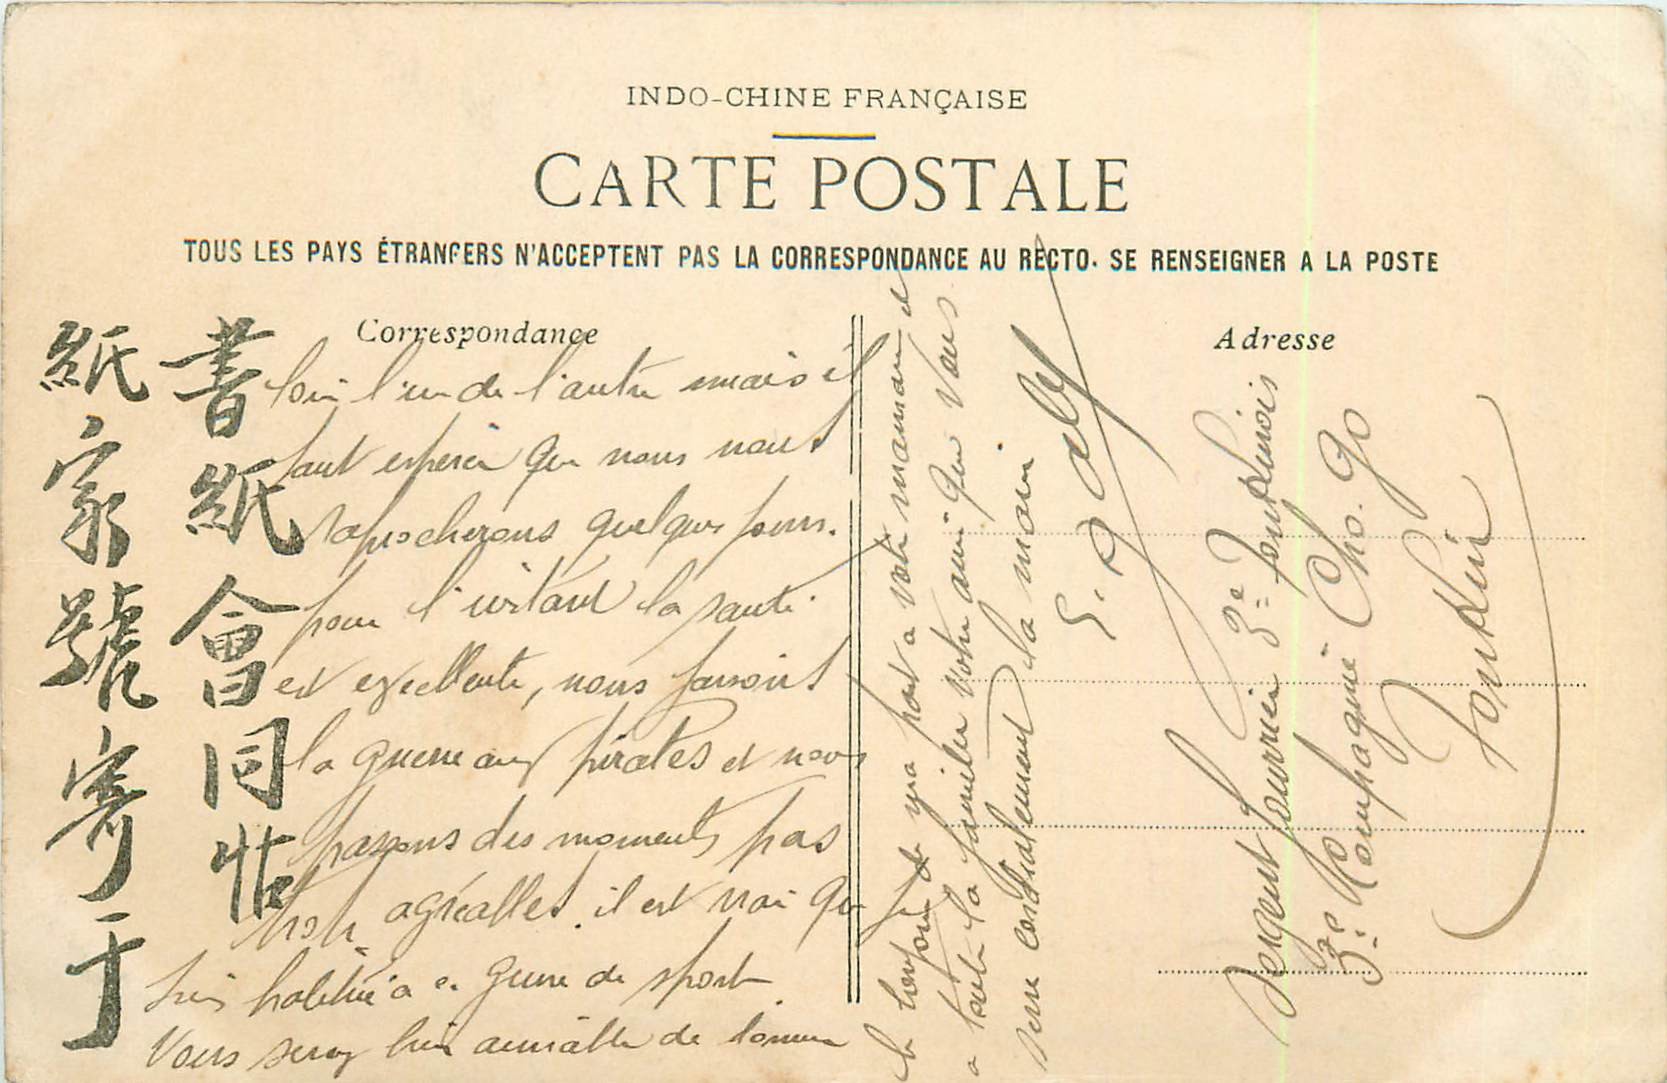 INDO-CHINE FRANÇAISE
CARTE POSTALE
TOUS LES PAYS ÉTRANGERS N'ACCEPTENT PAS LA CORRESPONDANCE AU RECTO. SE RENSEIGNER A LA POSTE
Correspondance
Adresse
書紙會同帖
紙家號寄于
loin l'un de l'autre mais il
faut esperer que nous nous
raprocherons quelques jours.
pour l'instant la santé
est excellente, nous faisons
la guerre aux pirates et nous
passons des moments pas
trop agréables. il est vrai que je
suis habitué a ce genre de sport
Vous serez bien aimable de donner
le bonjour de ma part a votre maman et
a toute la famille votre ami que vous
serre cordialement la main
Sergent fourrier 3e Tonkinois
3e Compagnie Cho. Go
Tonkin